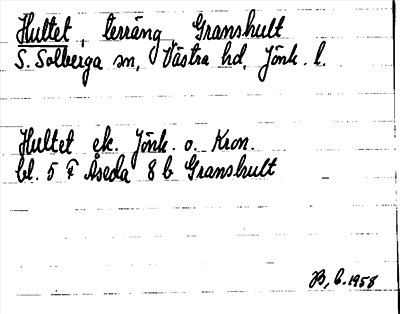 Hultet, terräng, Granshult
S. Solberga sn, Västra hd, Jönk. l.
Hultet ek. Jönk. o. Kron.
bl. 5 F Åseda 8 b Granshult
B, 6.1958